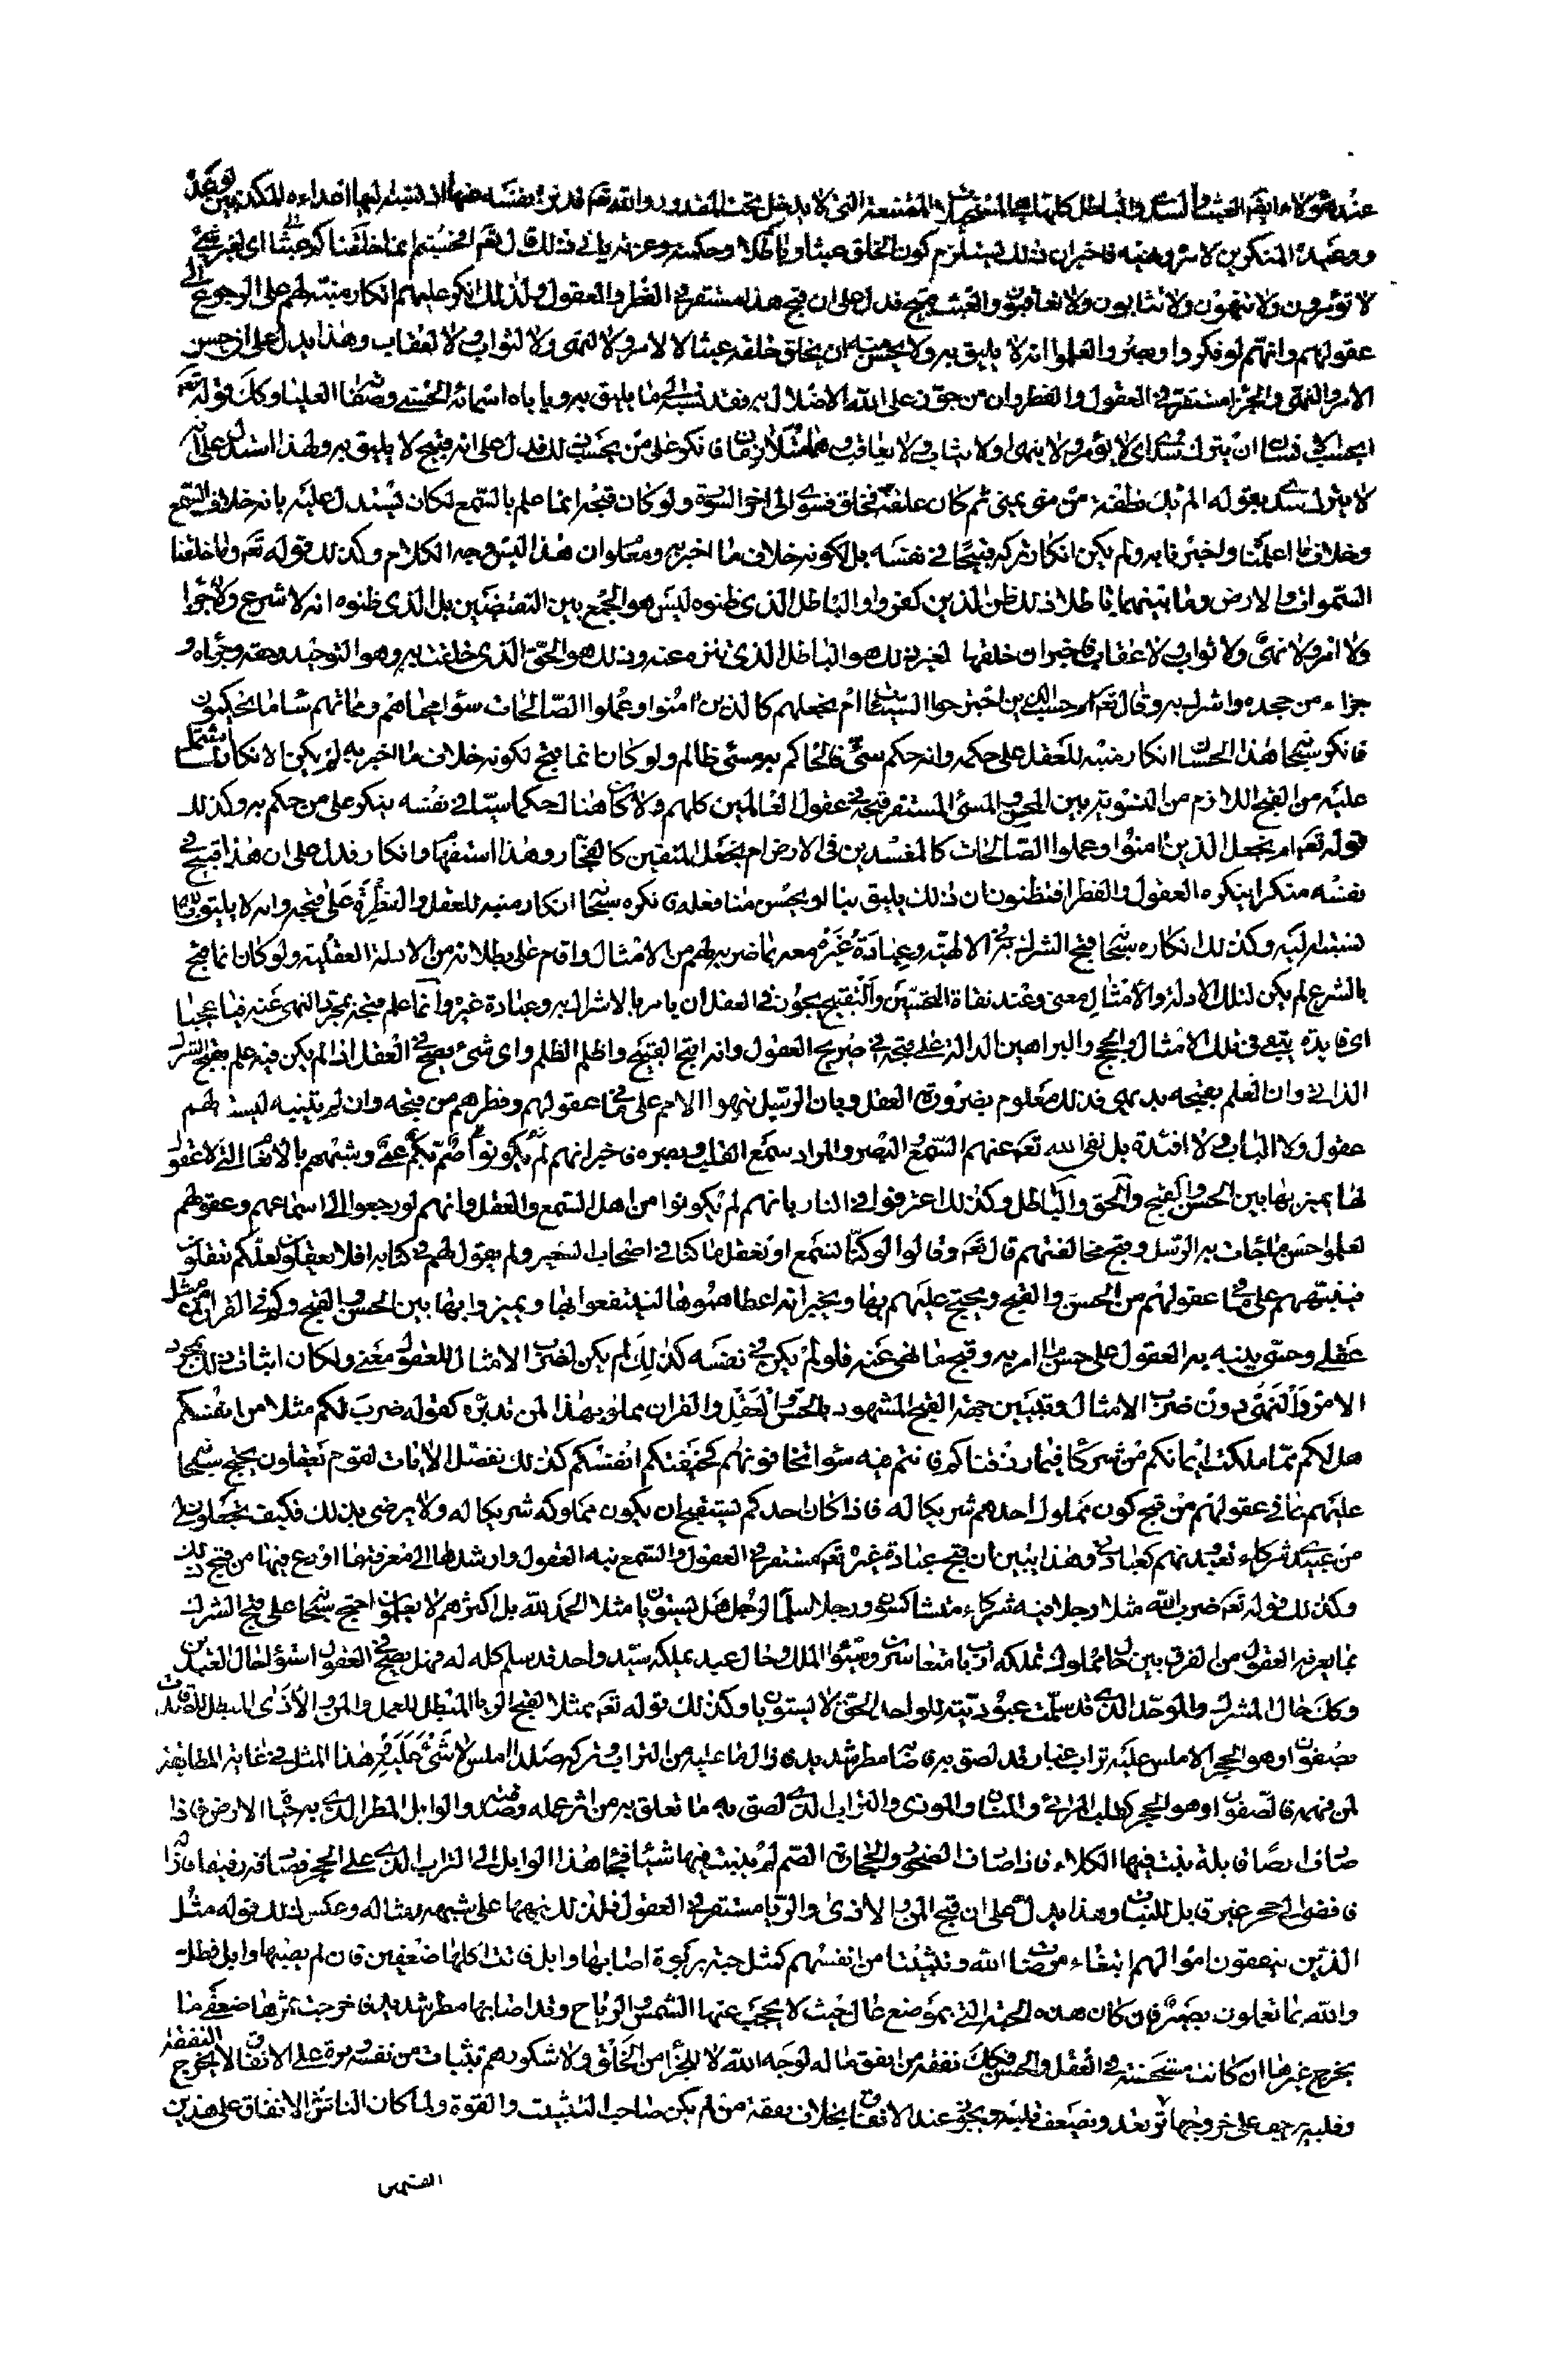 عند هؤلاء العبث والسدى والباطل كلها هى المستحيلات الممتنعة التى لا يدخل تحت المقدور والله تعم قد نزه نفسه عنها اذ نسبه اليها اعداءه المكذبين بوعده
ووعيده المنكرين لامره ونهيه فاخبر ان ذلك يستلزم كون الخلق عبثا وباطلا وحكمته وعزته يابى ذلك قال تعم افحسبتم انما خلقناكم عبثا اى لغير شئ
لا تؤمرون ولا تنهون ولا تثابون ولا تعاقبون والعبث قبيح فدل على ان قبح هذا مستقر فى الفطر والعقول ولذلك انكر عليهم انكار منبه لهم على الرجوع الى
عقولهم وانهم لو فكروا وبصروا لعلموا انه لا يليق به ولا يحسن منه ان يخلق خلقه عبثا لا لامر ولا لنهى ولا لثواب ولا لعقاب وهذا يدل على ان حسن
الامر والنهى والجزا مستقر فى العقول والفطر وان من جوز على الله الاخلال به فقد نسبه الى ما لا يليق به ويأباه اسمائه الحسنى وصفاته العليا وكذلك قوله تعم
ايحسب الانسان ان يترك سدى اى لا يؤمر ولا ينهى ولا يثاب ولا يعاقب وهما متلازمان فانكر على من يحسب ذلك فدل على انه قبيح لا يليق به ولهذا استدل على انه
لا يترك سدى بقوله الم يك نطفة من منى يمنى ثم كان علقة فخلق فسوى الى اخر السورة ولو كان قبحه انما علم بالسمع لكان يستدل عليه بانه خلاف السمع
وخلاف ما اعلمنا واخبرنا به ولم يكن انكار تركه قبيحا فى نفسه بل لكونه خلاف ما اخبر به ومعلوم ان هذا ليس وجه الكلام وكذلك قوله تعم وما خلقنا
السموات والارض وما بينهما باطلا ذلك ظن الذين كفروا والباطل الذى ظنوه ليس هو الجمع بين النقيضين بل الذى ظنوه انه لا شرع ولا جزا
ولا امر ولا نهى ولا ثواب ولا عقاب فاخبر ان خلقها لغير ذلك هو الباطل الذى تنزه عنه وذلك هو الحق الذى خلقت به وهو التوحيد وحقه وجزاه و
جزاء من جحده واشرك به وقال تعم ام حسب الذين اجترحوا السيئات ان نجعلهم كالذين امنوا وعملوا الصالحات سواء محياهم ومماتهم ساء ما يحكمون
فانكر سبحانه هذا الحسبان انكار منبه للعقل على حكمه وانه حكم سئ فالحاكم به مسئ ظالم ولو كان انما قبح لكونه خلاف ما اخبر به لم يكن الانكار لما يشتمل
عليه من القبح اللازم من التسوية بين المحسن والمسئ المستقر قبحه فى عقول العالمين كلهم ولا كان هنالك حكما سيئا فى نفسه ينكر على من حكم به وكذلك
قوله تعم ام نجعل الذين امنوا وعملوا الصالحات كالمفسدين فى الارض ام نجعل المتقين كالفجار وهذا استفهام وانكار فدل على ان هذا قبيح فى
نفسه منكرا ينكره العقول والفطر افتظنون ان ذلك يليق بنا او يحسن منا فعله فانكره سبحانه انكار منبه للعقل والفطرة على قبحه وانه لا يليق بالله
نسبته اليه وكذلك انكاره سبحانه قبح الشرك به فى الالهية وعبادة غيره معه بما ضربه لهم من الامثال واقام على بطلانه من الادلة العقلية ولو كان انما قبح
بالشرع لم يكن لتلك الادلة والامثال معنى وعند نفاة التحسين والتقبيح يجوز فى العقل ان يامر بالاشراك به وعبادة غيره وانما علم قبحه بمجرد النهى عنه فيا عجبا
اى فايدة يتبقى فى تلك الامثال والحجج والبراهين الدالة على قبحه فى صريح العقول وانه اقبح القبيح واظلم الظلم واى شئ يصح فى العقل اذا لم يكن فيه علم بقبح الشرك
الذاتى وان العلم بقبحه بديهى فذلك معلوم بضرورة العقل وبان الرسل نبهوا الامم على ما فى عقولهم وفطرهم من قبحه وان لم يتنبه ليست لهم
عقول ولا الباب ولا افئدة بل نفى الله تعم عنهم السمع والبصر والمراد سمع القلب وبصره فاخبر انهم لم يكونوا صم بكم عمى وشبههم بالانعام التى لا عقول
لها يميز بها بين الحسن والقبيح والحق والباطل وكذلك اعترفوا فى النار بانهم لم يكونوا من اهل السمع والعقل وانهم لو رجعوا الى اسماعهم وعقولهم
لعلموا حسن ما جات به الرسل وقبح مخالفتهم قال تعم وقالوا لو كنا نسمع او نعقل ما كنا فى اصحاب السعير ولم يقول لهم فى كتابه افلا يعقلون لعلكم تعقلون
فينبههم على ما فى عقولهم من الحسن والقبيح ويحتج عليهم بها ويخبر انه اعطاهموها لينتفعوا بها ويميزوا بها بين الحسن والقبيح وكم فى القران من مثل
عقلى وحسى ينبه به العقول على حسن ما امر به وقبح ما نهى عنه فلو لم يكن فى نفسه كذلك لم يكن لضرب الامثال للعقول معنى ولكان اثبات ذلك بمجرد
الامر والنهى دون ضرب الامثال وتبيين جهة القبح المشهود بالحس والعقل والقران مملو بهذا لمن تدبره كقوله ضرب لكم مثلا من انفسكم
هل لكم مما ملكت ايمانكم من شركاء فيما رزقناكم فانتم فيه سواء تخافونهم كخيفتكم انفسكم كذلك نفصل الايات لقوم يعقلون يحتج سبحانه
عليهم بما فى عقولهم من قبح كون مملوك احدهم شريكا له فاذا كان احدكم يستقبح ان يكون مملوكه شريكا له ولا يرضى بذلك فكيف تجعلون لى
من عبيدى شركاء تعبدونهم كعبادتى وهذا يبين ان قبح عبادة غيره تعم مستقر فى العقول والسمع نبه العقول وارشدها الى معرفة ما اودع فيها من قبح ذلك
وكذلك قوله تعم ضرب الله مثلا رجلا فيه شركاء متشاكسون ورجلا سلما لرجل هل يستويان مثلا الحمد لله بل اكثرهم لا يعلمون احتج سبحانه على قبح الشرك
بما يعرفه العقول من الفرق بين حال مملوك تملكه ارباب متعاسرون سيئوا الملك وحال عبد يملكه سيد واحد قد سلم كله له فهل يصح فى العقول استواء حال العبدين
وكذلك حال المشرك والموحد الذى قد سلمت عبوديته للواحد الحق لا يستويان وكذلك قوله تعم ممثلا لقبح الريا المبطل للعمل والمن والاذى المبطل للصدقات
بصفوان وهو الحجر الاملس عليه تراب غبار قد لصق به فاصابه مطر شديد فازال ما عليه من التراب وتركه صلدا املس لا شئ عليه وهذا المثل فى غاية المطابقة
لمن فهمه فالصفوان وهو الحجر كقلب المرائى والمنان والموذى والتراب الذى لصق به ما تعلق به من اثر عمله وصدقته والوابل المطر الذى به حياة الارض فاذا
صادف ارضا قابلة ينبت فيها الكلاء فاذا صادف الصخور والحجارة الصم لم ينبت فيها شيئا فجاء هذا الوابل الى التراب الذى على الحجر فصادفه رقيقا فاذا
فافضى الى حجر غير قابل للنبات وهذا يدل على ان قبح المن والاذى والريا مستقر فى العقول فلذلك نبهها على شبهه ومثاله وعكس ذلك قوله مثل
الذين ينفقون اموالهم ابتغاء مرضات الله وتثبيتا من انفسهم كمثل جنة بربوة اصابها وابل فاتت اكلها ضعفين فان لم يصبها وابل فطل
والله بما تعملون بصير فان كان هذه الجنة التى بموضع عال حيث لا يحجب عنها الشمس والرياح وقد اصابها مطر شديد فاخرجت ثمرها ضعفى ما
يخرج غيرها ان كانت مستحسنة فى العقل والحس فكذلك نفقة من انفق ماله لوجه الله لا لجزاء من الخلق ولا شكور هم تثبيات من نفسه وقوة على الانفاق لا يخرج النفقة
وقلبه يرجف على خروجها ويداه ترتعد ويضعف قلبه ويجوز عند الانفاق بخلاف نفقة من لم يكن صاحب التثبيت والقوة ولما كان الناس فى الانفاق على هذين
القسمين